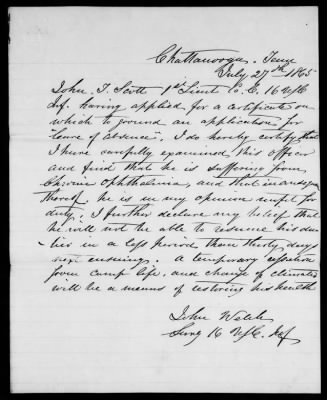 Chattanooga, Tenn
July 27th 1865
John T. Scott 1st Lieut Co. C. 16 USC
Inf. having applied for a certificate on
which to ground an application for
"leave of absence". I do hereby certify that
I have carefully examined this officer
and find that he is suffering from
Chronic Ophthalmia, and that in consequence
thereof he is in my opinion unfit for
duty. I further declare my belief that
he will not be able to resume his du-
ties in a less period than thirty days
next ensuing. A temporary cessation
from camp life, and change of climate
will be a means of restoring his health
John Welch
Surg 16 USC. Inf